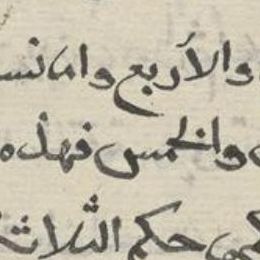 والأربع واما نسـ
والخمس فهذه
حكم الثلاثة